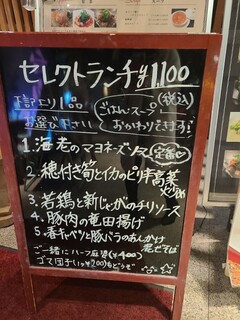 セレクトランチ¥1,100
(税込)
下記より1品
お選び下さい
ごはん・スープ
おかわりできます♡
1.海老のマヨネーズソース
定番
2.穂付き筍とイカのピリ辛高菜炒め
3.若鶏と新じゃがのチリソース
4.豚肉の竜田揚げ
5.春キャベツと豚バラのあんかけ
混ぜそば
ご一緒にハーフ麻婆(¥400)
ゴマ団子(1ヶ¥200)もどうぞ